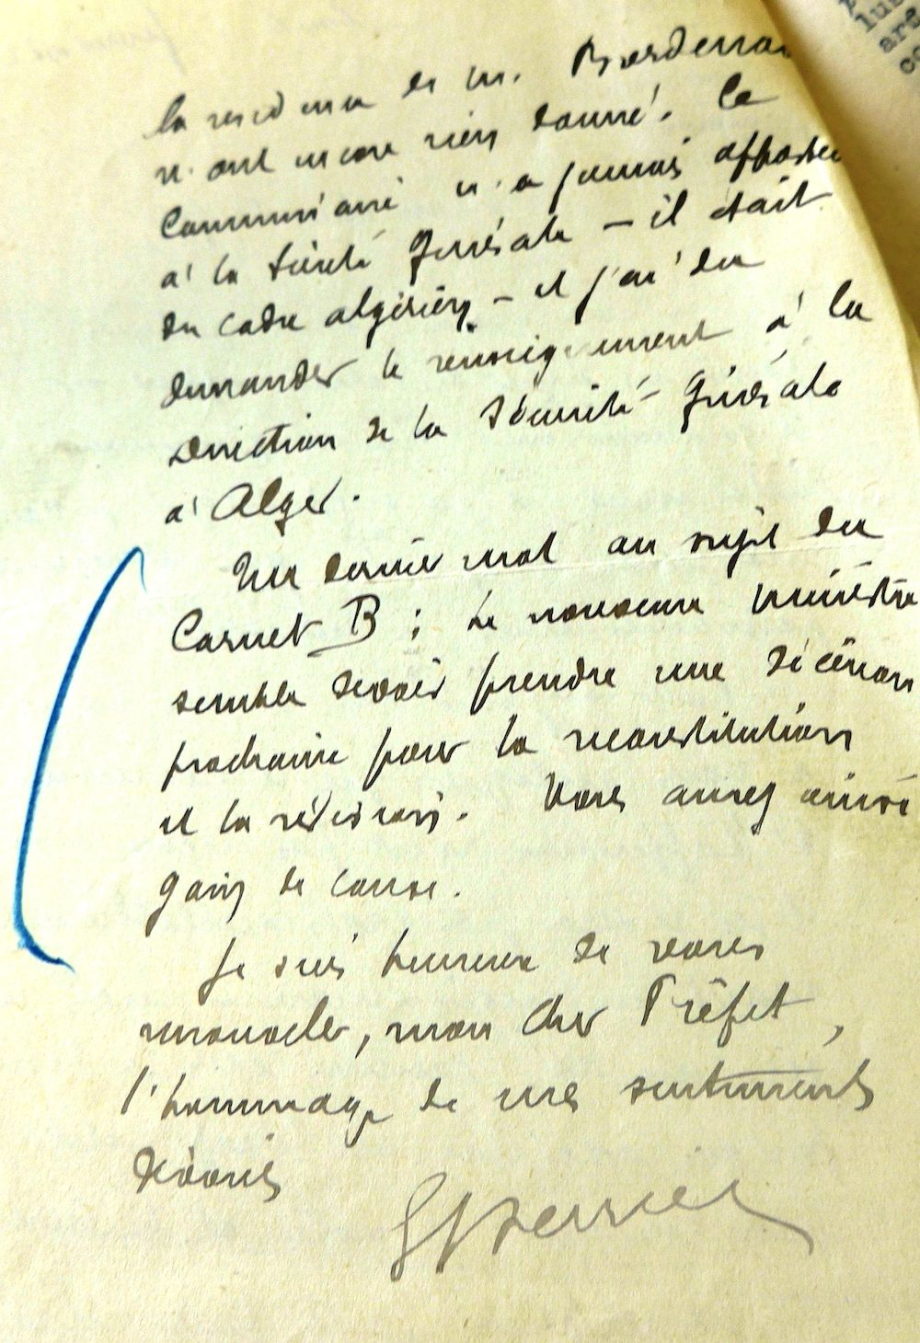 la residence de M. Borderra
n'ont encore rien donné. Ce
Commissaire n'a jamais appartenu
à la Sûreté Générale – il était
du cadre algérien – et j'ai du
demander le renseignement à la
direction de la Sécurité Générale
à Alger.
Un dernier mot au sujet du
Carnet B ; Le nouveau ministre
semble devoir prendre une décision
prochaine pour la reconstitution
et la révision. Vous aurez ainsi
gain de cause.
Je suis heureux de vous
renouveler, mon cher Préfet,
l'hommage de mes sentiments
dévoués